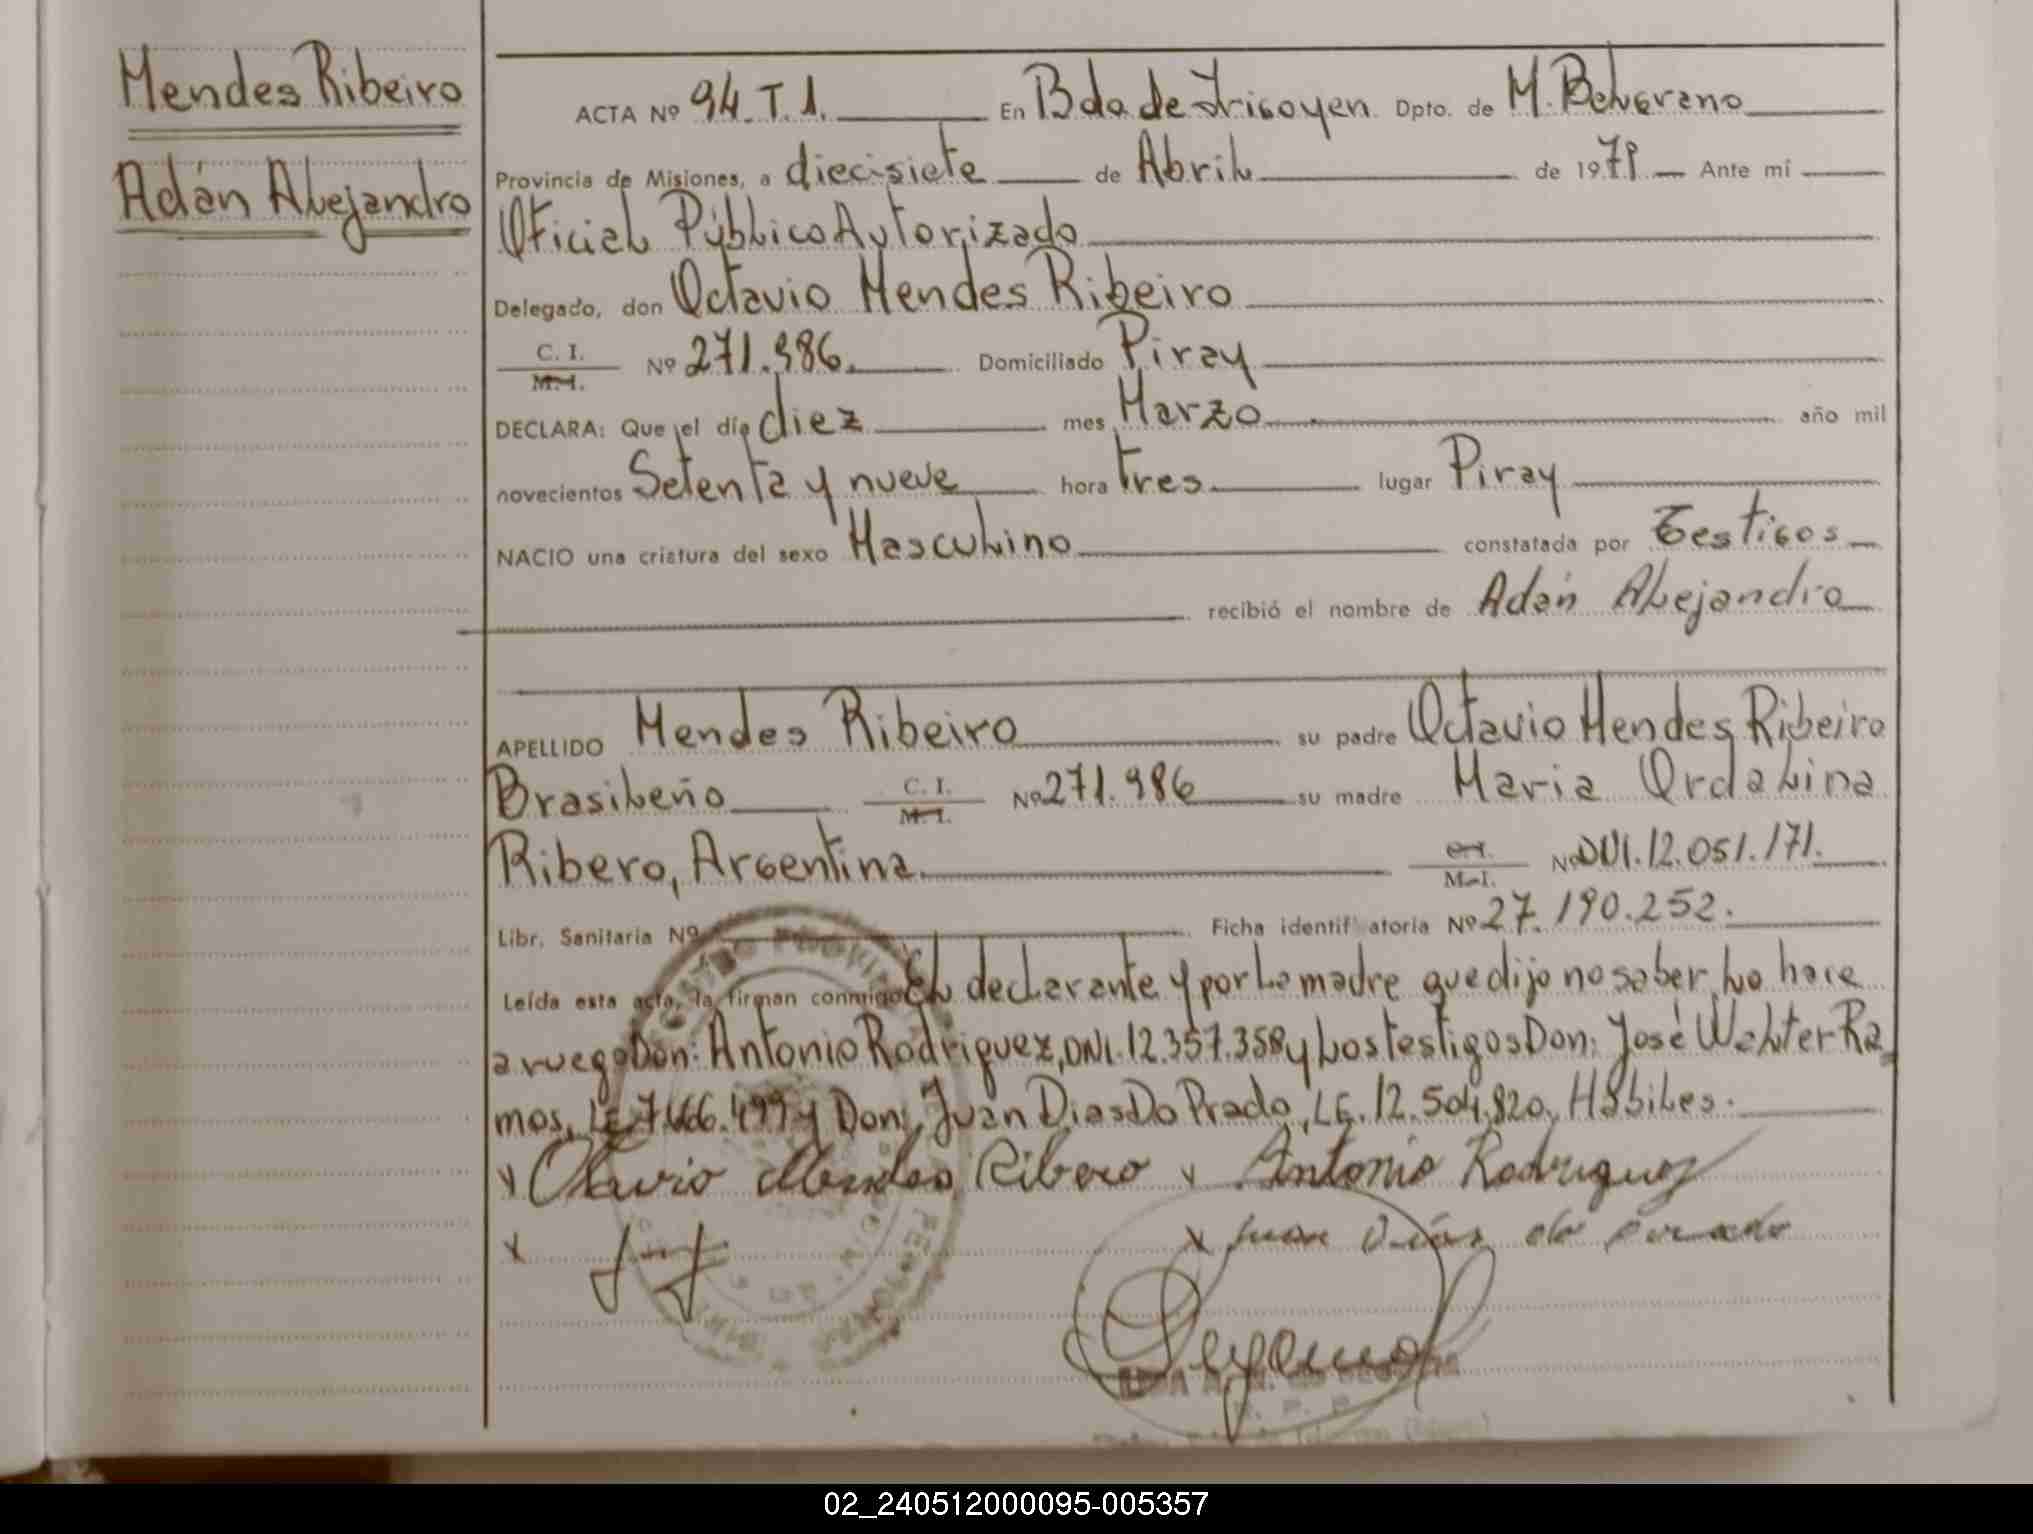 Mendes Ribeiro
Adán Alejandro
ACTA Nº 94. T. 1. En Bdo. de Irigoyen. Dpto. de M. Belgrano
Provincia de Misiones, a diecisiete de Abril de 1979 Ante mí
Oficial Público Autorizado
Delegado, don Octavio Mendes Ribeiro
C. I. M. I. Nº 271.986. Domiciliado Piray
DECLARA: Que el día diez mes Marzo año mil
novecientos Setenta y nueve hora tres lugar Piray
NACIO una criatura del sexo Masculino constatada por Testigos
recibió el nombre de Adán Alejandro
APELLIDO Mendes Ribeiro su padre Octavio Mendes Ribeiro
Brasileño C. I. M. I. Nº 271.986 su madre Maria Ordalina
Ribero, Argentina C. I. M. I. Nº DNI. 12.051.171.
Libr. Sanitaria Nº Ficha identificatoria Nº 27.190.252.
Leída esta acta, la firman conmigo El declarante y por la madre que dijo no saber lo hace
a ruego Don: Antonio Rodriguez, DNI. 12.357.358 y los testigos Don: José Walter Ra
mos, LE. 7.466.499 y Don: Juan Dias Do Prado, LE. 12.504.820, Hábiles.
x Otavio Mendes Ribero x Antonio Rodriguez
x x Juan Días do prado
02_240512000095-005357